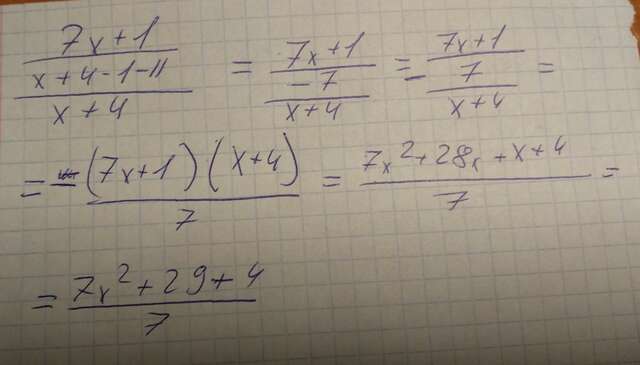 7x+1
x+4-1-11
x+4
= 7x+1
-7
x+4
= - 7x+1
7
x+4
=
= - (7x+1)(x+4)
7
= 7x²+28x+x+4
7
=
= 7x²+29+4
7